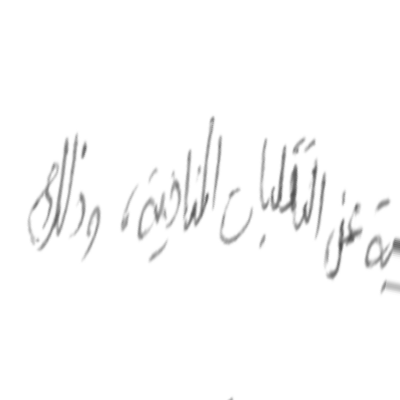 عن التقلبات المناخية، وذلك